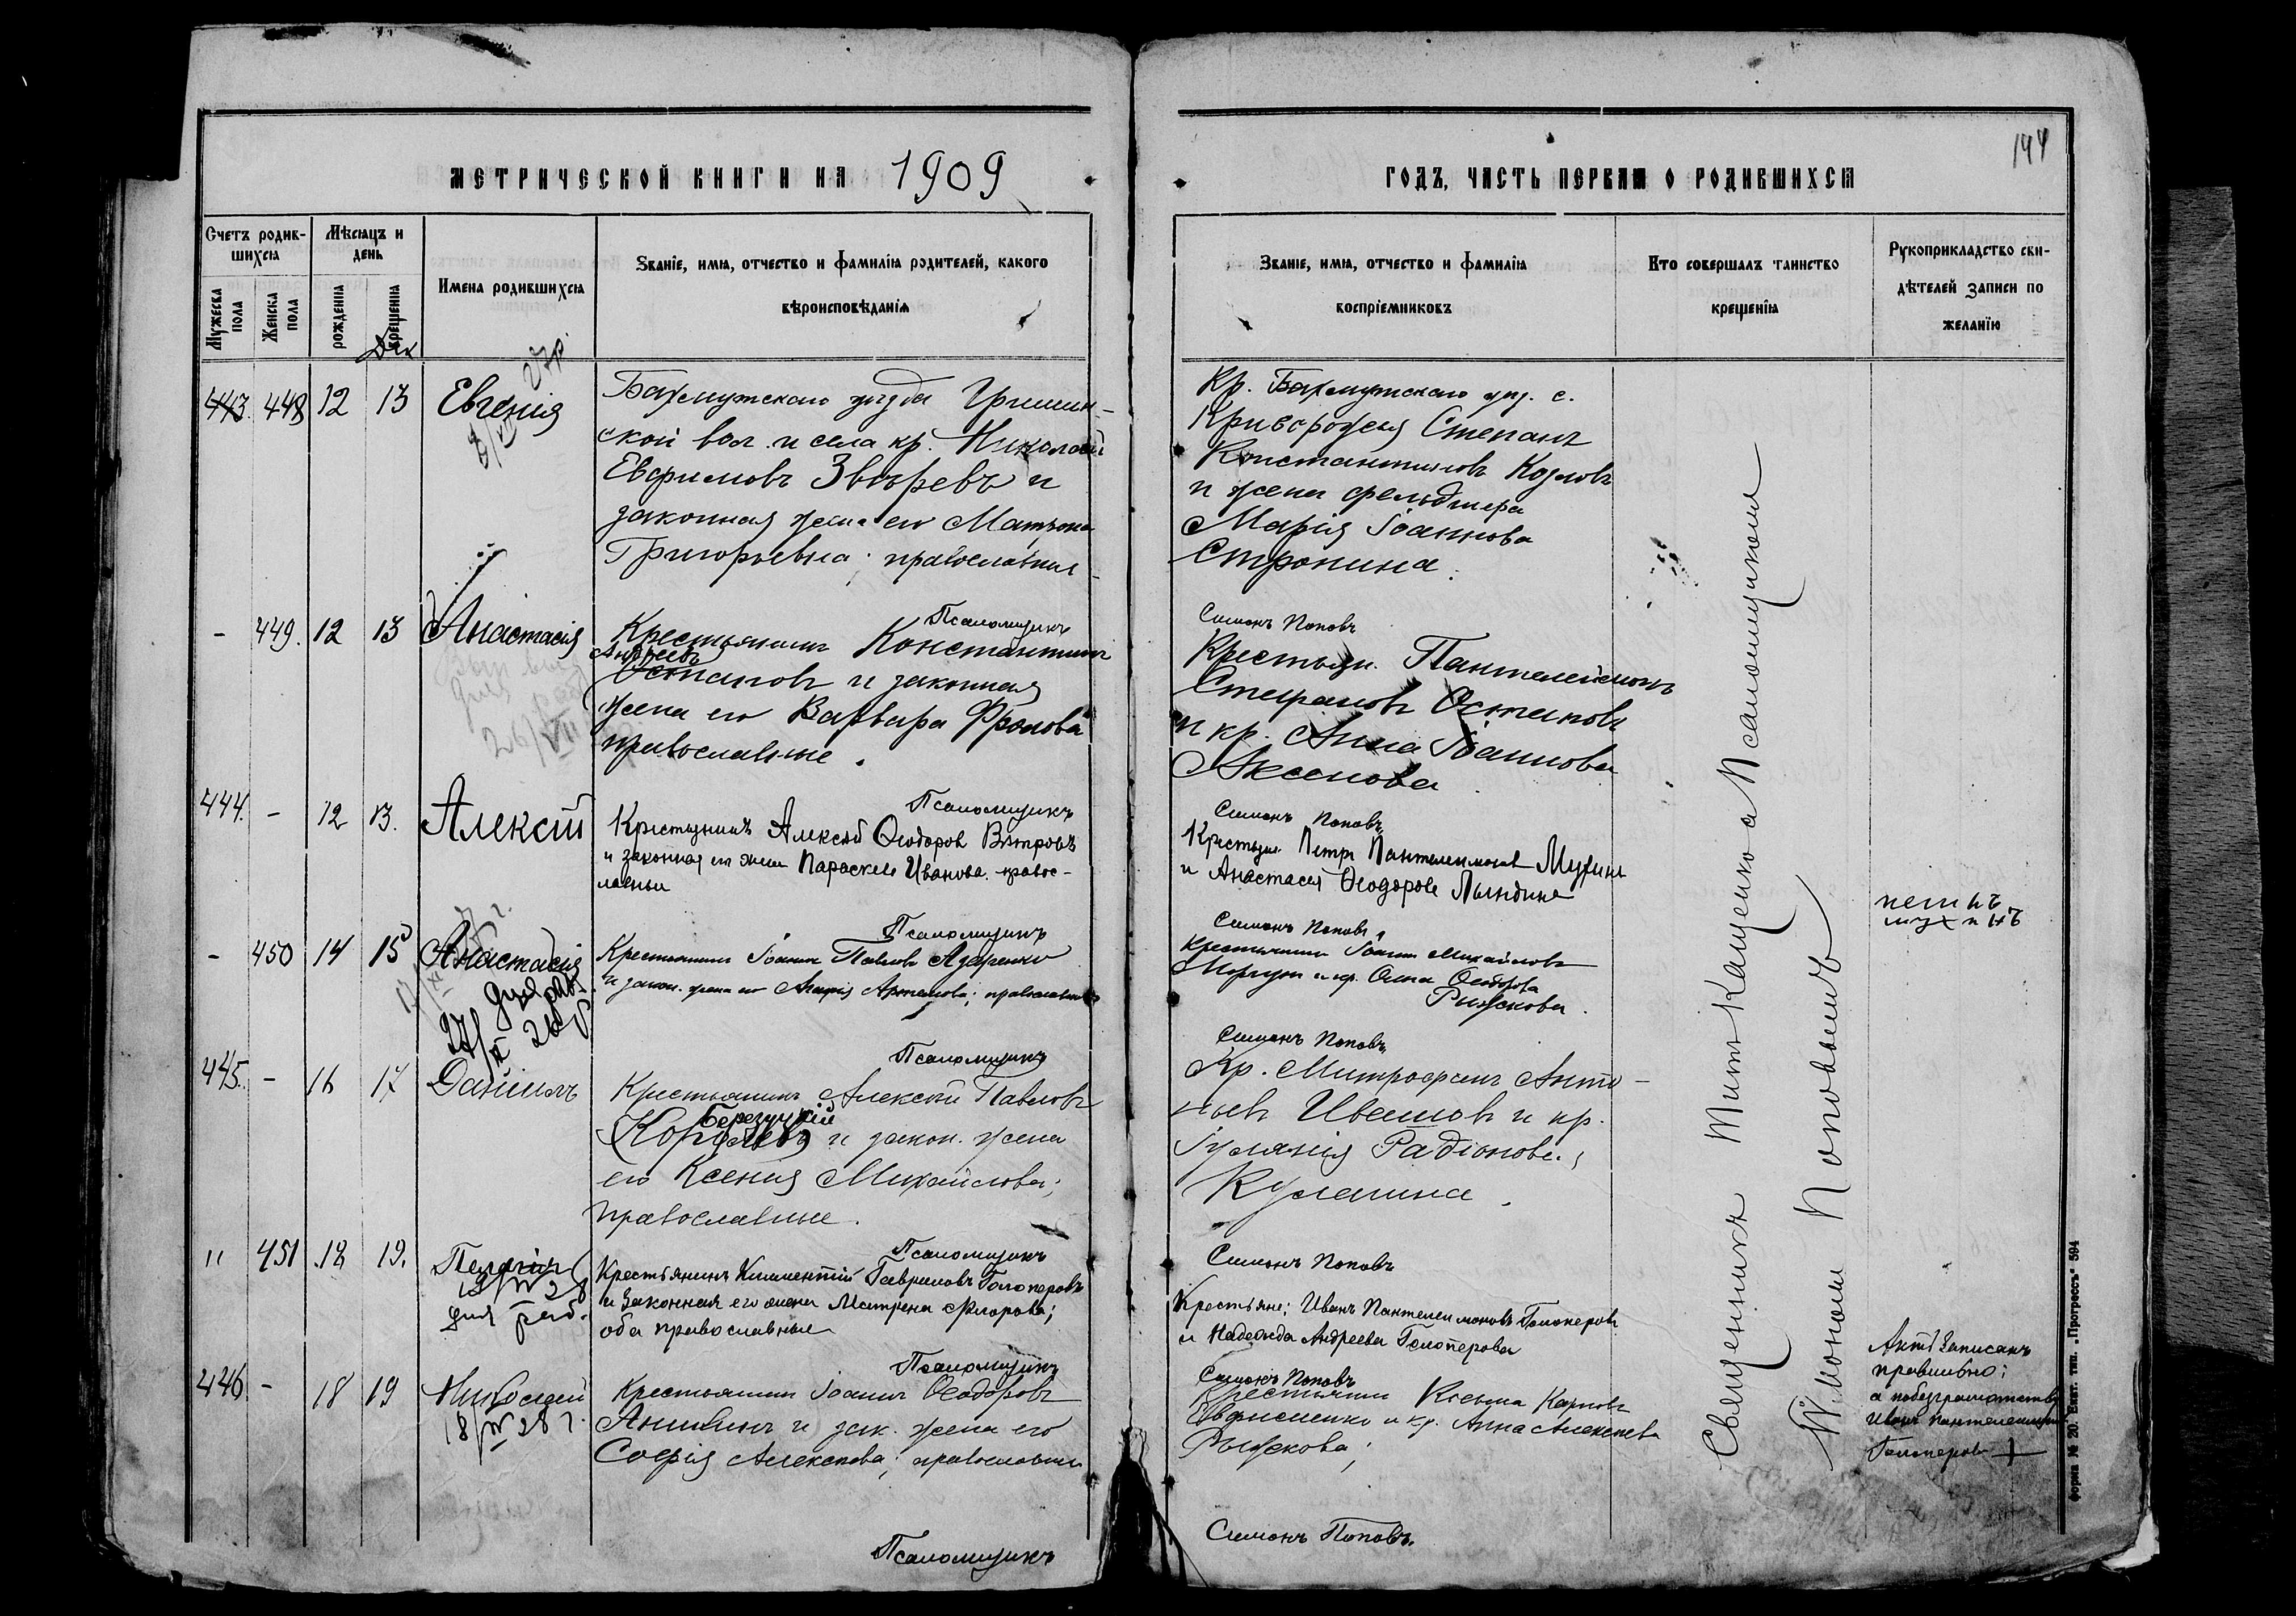 144
МЕТРИЧЕСКОЙ КНИГИ НА 1909
ГОДЪ, ЧАСТЬ ПЕРВАЯ О РОДИВШИХСЯ
Счетъ родив-
шихся
Мужеска
пола
Женска
пола
Мѣсяцъ и
день
рожденія
крещенія
Дек
Имена родившихся
Званіе, имя, отчество и фамилія родителей, какого
вѣроисповѣданія
Званіе, имя, отчество и фамилія
воспріемниковъ
Кто совершалъ таинство
крещенія
Рукоприкладство сви-
дѣтелей записи по
желанію
443. 448 12 13 Евгенія
Бахмутскаго уѣзда Гришин-
ской вол. и села кр. Николай
Евфимовъ Звѣревъ и
законная жена его Матрона
Григорьевна; православные
Кр. Бахмутскаго уѣз. с.
Криворожья Степанъ
Константиновъ Козловъ
и жена фельдшера
Марія Іоаннова
Стронина.
Псаломщикъ
Симонъ Поповъ
- 449. 12 13 Анастасія
26/VII
Крестьянинъ Константинъ
Андреевъ
Остаповъ и законная
жена его Варвара Фролова
православные.
Крестьян. Пантелеймонъ
Стефановъ Остаповъ
и кр. Анна Іоаннова
Аксенова
Псаломщикъ
Симонъ Поповъ
444. - 12 13. Алексѣй
Крестьянинъ Алексѣй Ѳеодоров Вѣтровъ
и законная его жена Параскева Иванова. правос-
лавные
Крестьян. Петръ Пантелеимонов Мухин
и Анастасія Ѳеодорова
Псаломщикъ
Симонъ Поповъ
- 450 14 15 Анастасія
Крестьянинъ Іоаннъ Павловъ Азаренко
и закон. жена его Агафія Артемова; православные
Крестьянинъ Іоаннъ Михайловъ
и кр. Анна Ѳеодорова
Рыжкова.
Псаломщикъ
Симонъ Поповъ
445. - 16 17 Даніилъ
Крестьянинъ Алексѣй Павловъ
Березуцкій
(Королевъ) и закон. жена
его Ксенія Михайлова;
православные.
Кр. Митрофанъ Анто-
новъ Ивашовъ и кр.
Іуліанія Радіонова
Кулагина.
Псаломщикъ
Симонъ Поповъ
" 451 18 19. Пелагія
для раб.
Крестьянинъ Климентій Гавриловъ Голоперовъ
и Законная его жена Матрена Флорова;
оба православные
Крестьяне: Иванъ Пантелеимоновъ Голоперовъ
и Надежда Андреева Голоперова
Актъ Записанъ
правильно;
а по безграмотству
Иванъ Пантелеимон
Голоперов +
Псаломщикъ
Симонъ Поповъ
446 - 18 19 Николай
18/IV 28 г.
Крестьянинъ Іоаннъ Ѳеодоровъ
Аникинъ и зак. жена его
Софія Алексѣева; православные
Крестьянинъ Козьма Карповъ
Евфименко и кр. Анна Алексѣева
Рыжкова;
Псаломщикъ
Симонъ Поповъ.
Священникъ Титъ Кащенко а Псаломщикомъ
Симономъ Поповымъ
форма № 20. Екат. тип. „Прогрессъ“ 594